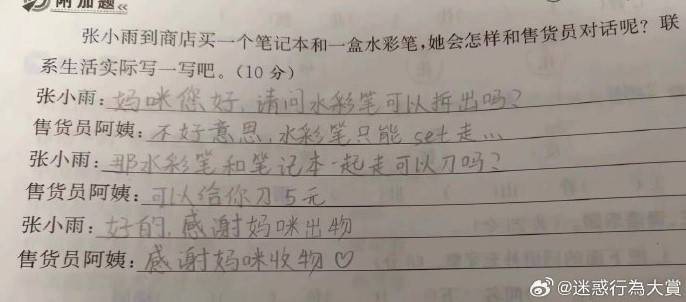 附加题
张小雨到商店买一个笔记本和一盒水彩笔,她会怎样和售货员对话呢?联
系生活实际写一写吧。(10分)
张小雨:妈咪您好,请问水彩笔可以拆出吗?
售货员阿姨:不好意思,水彩笔只能set走...
张小雨:那水彩笔和笔记本一起走可以刀吗?
售货员阿姨:可以给你刀5元
张小雨:好的,感谢妈咪出物
售货员阿姨:感谢妈咪收物♡
@迷惑行為大賞